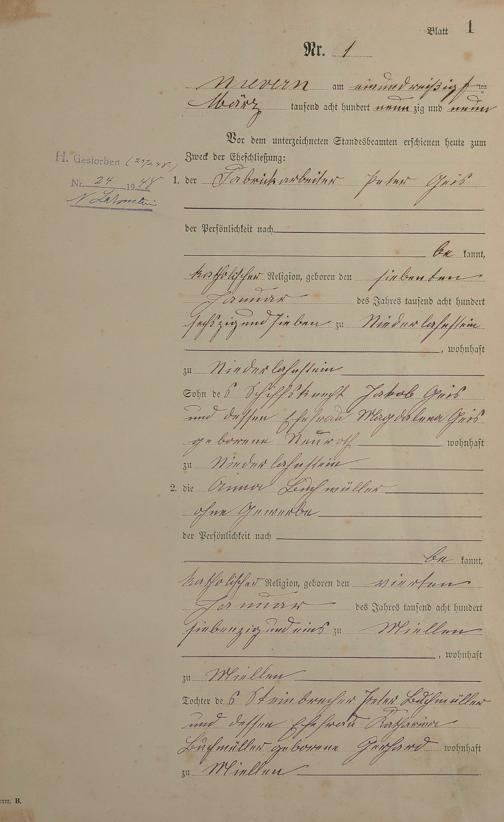 Blatt 1
Nr. 1
Nievern am einunddreißigsten
März tausend acht hundert neunzig und neun
Vor dem unterzeichneten Standesbeamten erschienen heute zum
Zweck der Eheschließung:
H. Gestorben
Nr. 24 1948
N Lahnstein
1. der Fabrikarbeiter Peter Geis
der Persönlichkeit nach
be kannt,
katholischer Religion, geboren den siebenten
Januar des Jahres tausend acht hundert
sechszig und sieben zu Niederlahnstein
, wohnhaft
zu Niederlahnstein
Sohn des Schiffsknecht Jakob Geis
und dessen Ehefrau Magdalena Geis
geborene Neuroth wohnhaft
zu Niederlahnstein
2. die Anna Buchmüller
ohne Gewerbe
der Persönlichkeit nach
be kannt,
katholischer Religion, geboren den vierten
Januar des Jahres tausend acht hundert
siebenzig und eins zu Miellen
, wohnhaft
zu Miellen
Tochter des Steinbrecher Peter Buchmüller
und dessen Ehefrau Katharina
Buchmüller geborene Gerhard wohnhaft
zu Miellen
B.